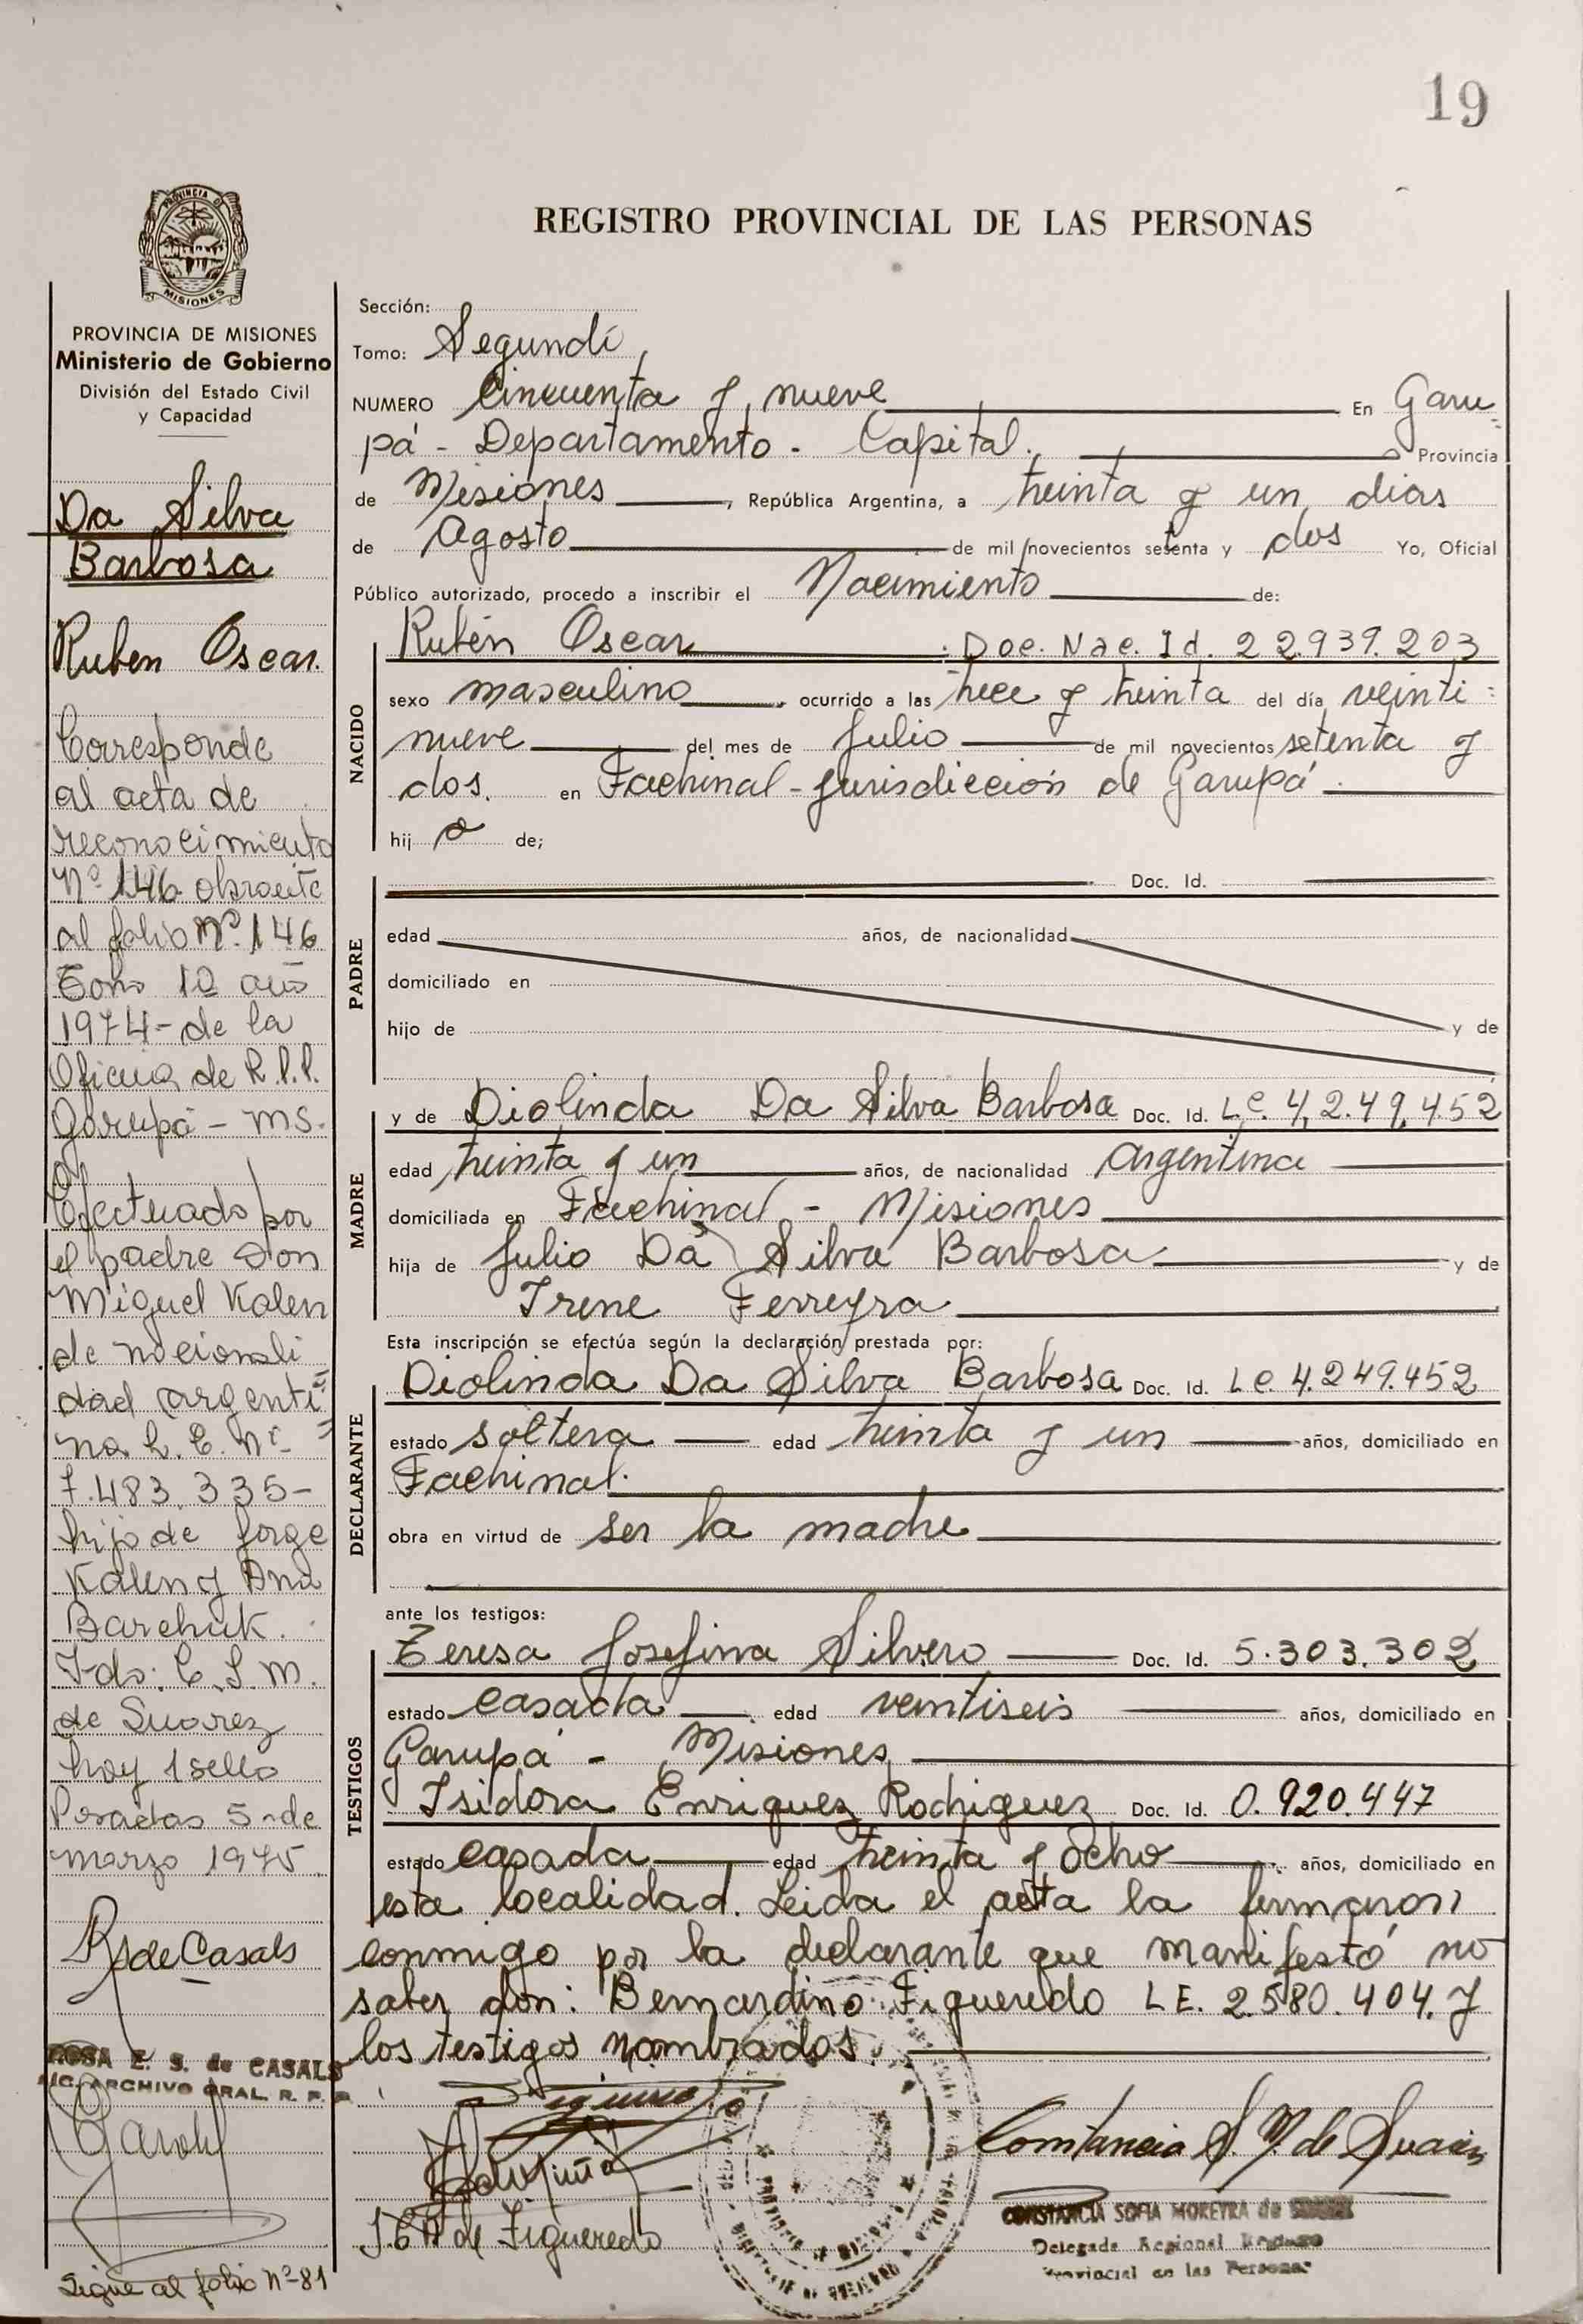 19
PROVINCIA DE
MISIONES
REGISTRO PROVINCIAL DE LAS PERSONAS
PROVINCIA DE MISIONES
Ministerio de Gobierno
División del Estado Civil
y Capacidad
Da Silva
Barbosa
Ruben Oscar.
Corresponde
al acta de
reconocimiento
Nº 146 obrante
al folio Nº. 146
Tomo 1º año
1974 - de la
Oficina de R.P.P.
Garupá - MS.
Efectuado por
el padre Don
Miguel Kalen
de nacionali
dad argenti=
na L. E. Nº
7.483.335-
hijo de Jorge
Kalen y Ana
Barchuk.
Fdo: C.S.M.
de Suarez
hay 1 sello
Posadas 5 - de
marzo 1975
RS de Casals
ROSA E. S. de CASALS
ARCHIVO GRAL. R. P. P.
Sigue al folio Nº-81
Sección:
Tomo: Segundo
NUMERO Cincuenta y nueve En Garu=
pá - Departamento - Capital. Provincia
de Misiones, República Argentina, a treinta y un dias
de Agosto de mil novecientos setenta y dos Yo, Oficial
Público autorizado, procedo a inscribir el Nacimiento de:
NACIDO
Rubén Oscar. Doc. Nac. Id. 22.939.203
sexo masculino, ocurrido a las trece y treinta del día veinti=
nueve del mes de Julio de mil novecientos setenta y
dos. en Fachinal - Jurisdicción de Garupá.
hij o de;
PADRE
Doc. Id.
edad años, de nacionalidad
domiciliado en
hijo de y de
MADRE
y de Diolinda Da Silva Barbosa Doc. Id. Lc. 4.249.452
edad treinta y un años, de nacionalidad Argentina
domiciliada en Fachinal - Misiones
hija de Julio Da Silva Barbosa y de
Irene Ferreyra
Esta inscripción se efectúa según la declaración prestada por:
DECLARANTE
Diolinda Da Silva Barbosa Doc. Id. Lc. 4.249.452
estado soltera edad treinta y un años, domiciliado en
Fachinal.
obra en virtud de ser la madre
ante los testigos:
TESTIGOS
Teresa Josefina Silvero Doc. Id. 5.303.302
estado casada edad veintiseis años, domiciliado en
Garupá - Misiones
Isidora Enriquez Rodriguez Doc. Id. 0.920.447
estado casada edad treinta y ocho años, domiciliado en
esta localidad. Leida el acta la firmaron
conmigo por la declarante que manifestó no
saber don: Bernardino Figueredo LE. 2.580.404. y
los testigos nombrados.
de Figueredo
Constancia S. M. de Suarez
CONSTANCIA SOFIA MOREYRA de
Delegada Regional Registro
Provincial de las Personas